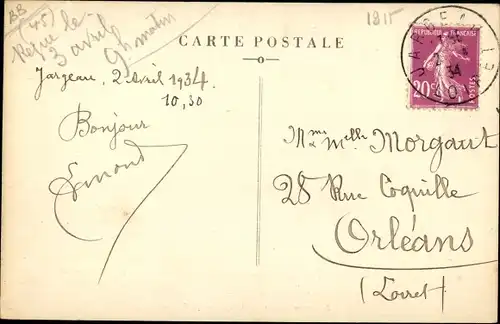 BB
(45)
Reçue le
3 avril
9h matin
1815
CARTE POSTALE
Jargeau, 2 Avril 1934.
10,30
Bonjour
JARGEAU
2 - 4
34
LOIRET
REPUBLIQUE FRANÇAISE
20c
POSTES
Mme & Melle Morgaut
28 Rue Coquille
Orléans
(Loiret)